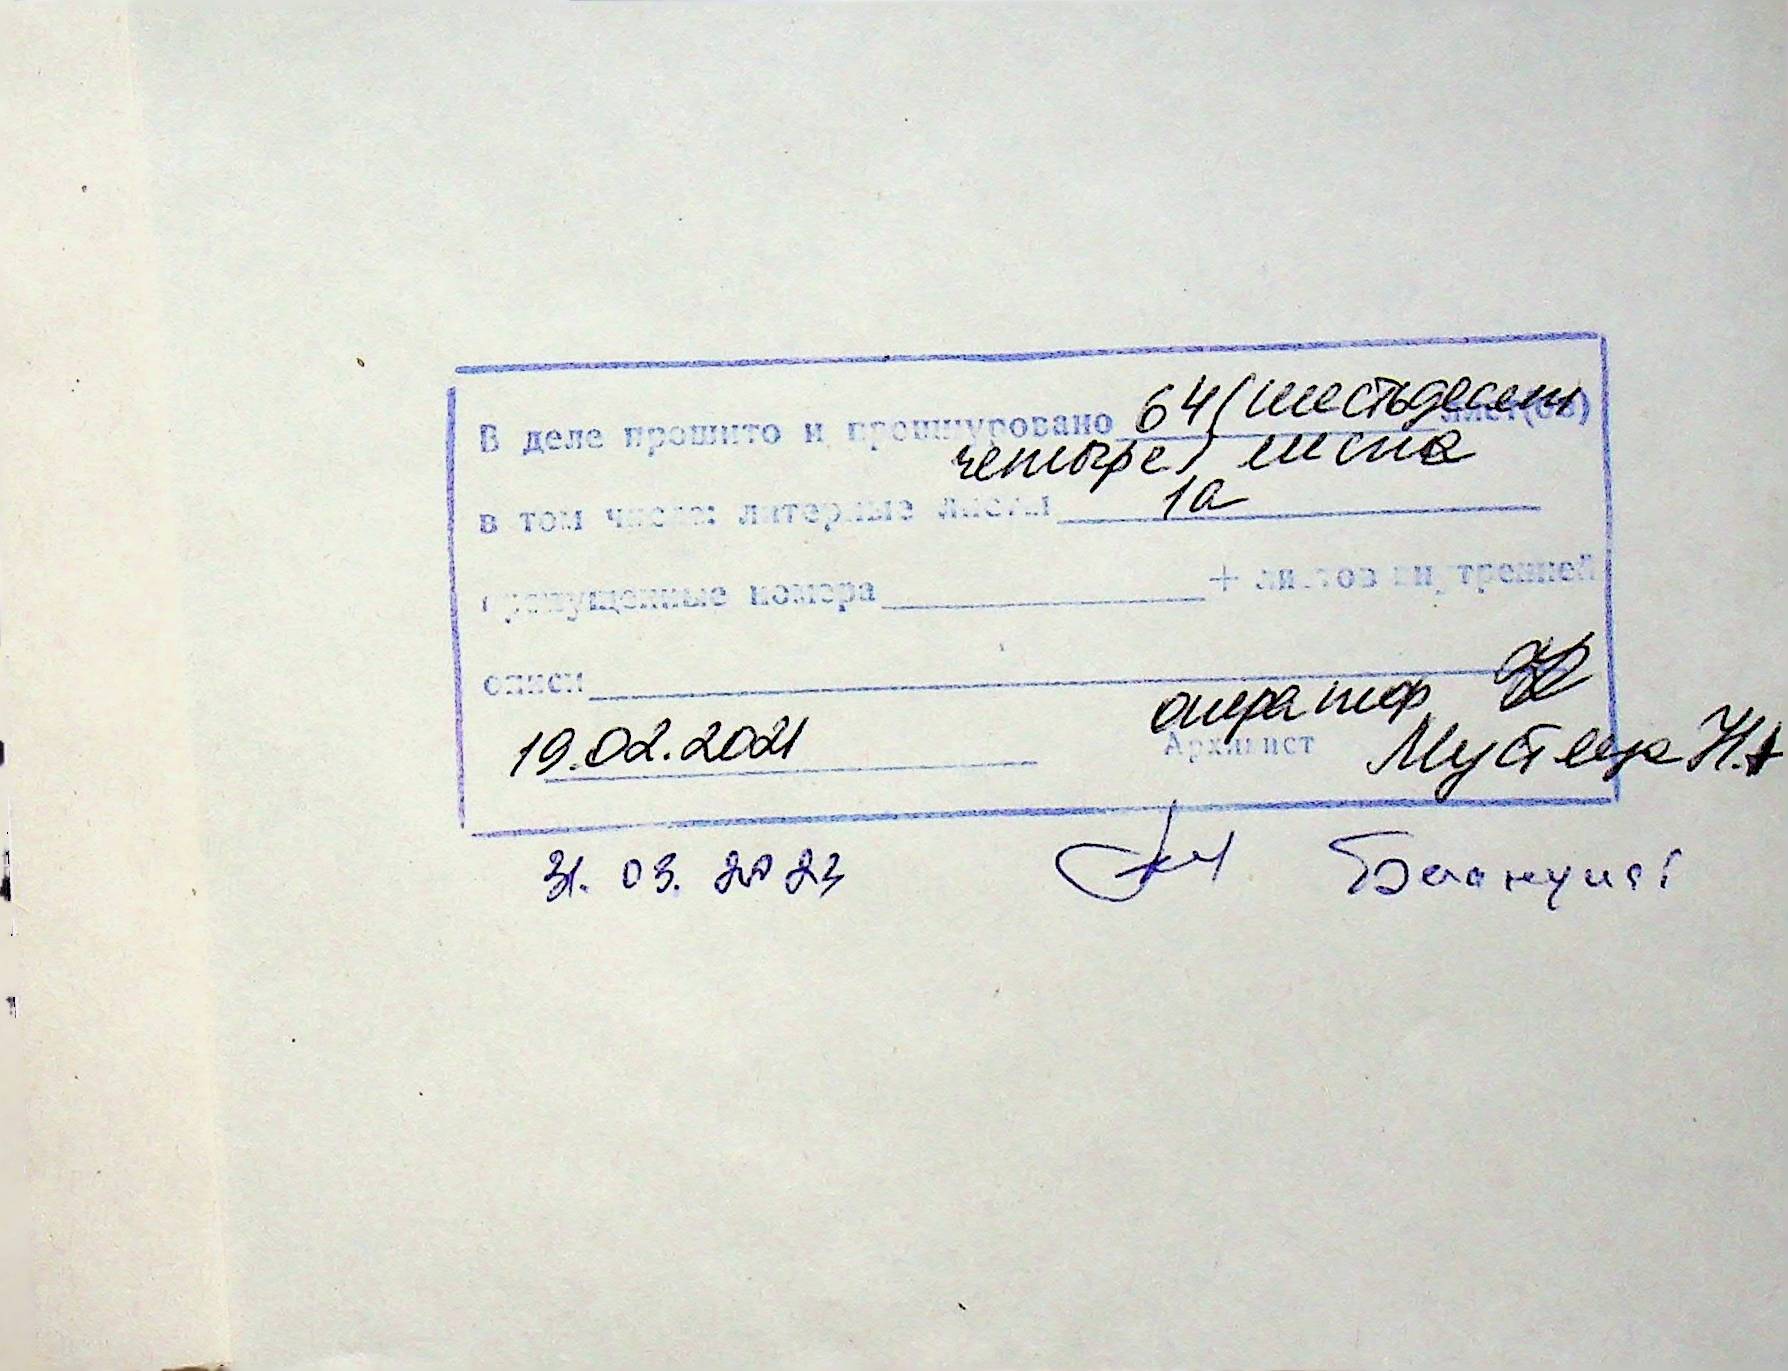 В деле прошито и прошнуровано 64 (шестьдесят лист(ов)
четыре) листа
в том числе: литерные листы 1а
пропущенные номера + листов внутренней
описи
оператор
19.02.2021 Архивист Н.А
31.03.2023